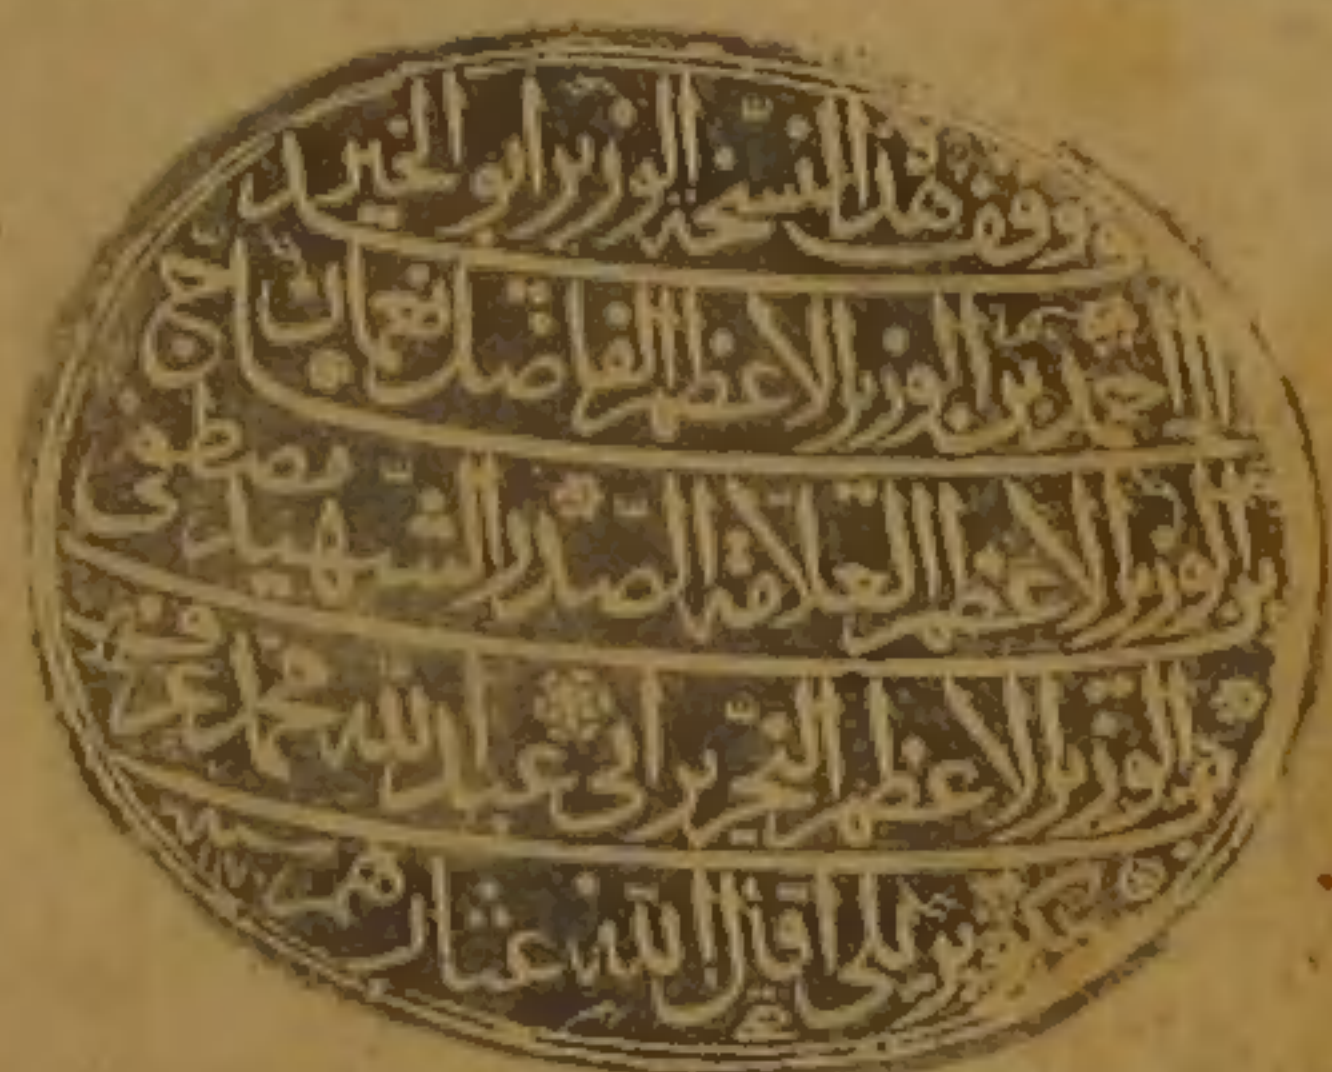 وقف هذا النسخة الوزير ابو الخير
الحاج احمد بن الوزير الاعظم الفاضل نعمان
بن الوزير الاعظم العلامة الصدر الشهيد مصطفى
بن الوزير الاعظم النحرير ابي عبد الله محمد عرف
بكوپريلى اقال الله عثارهم